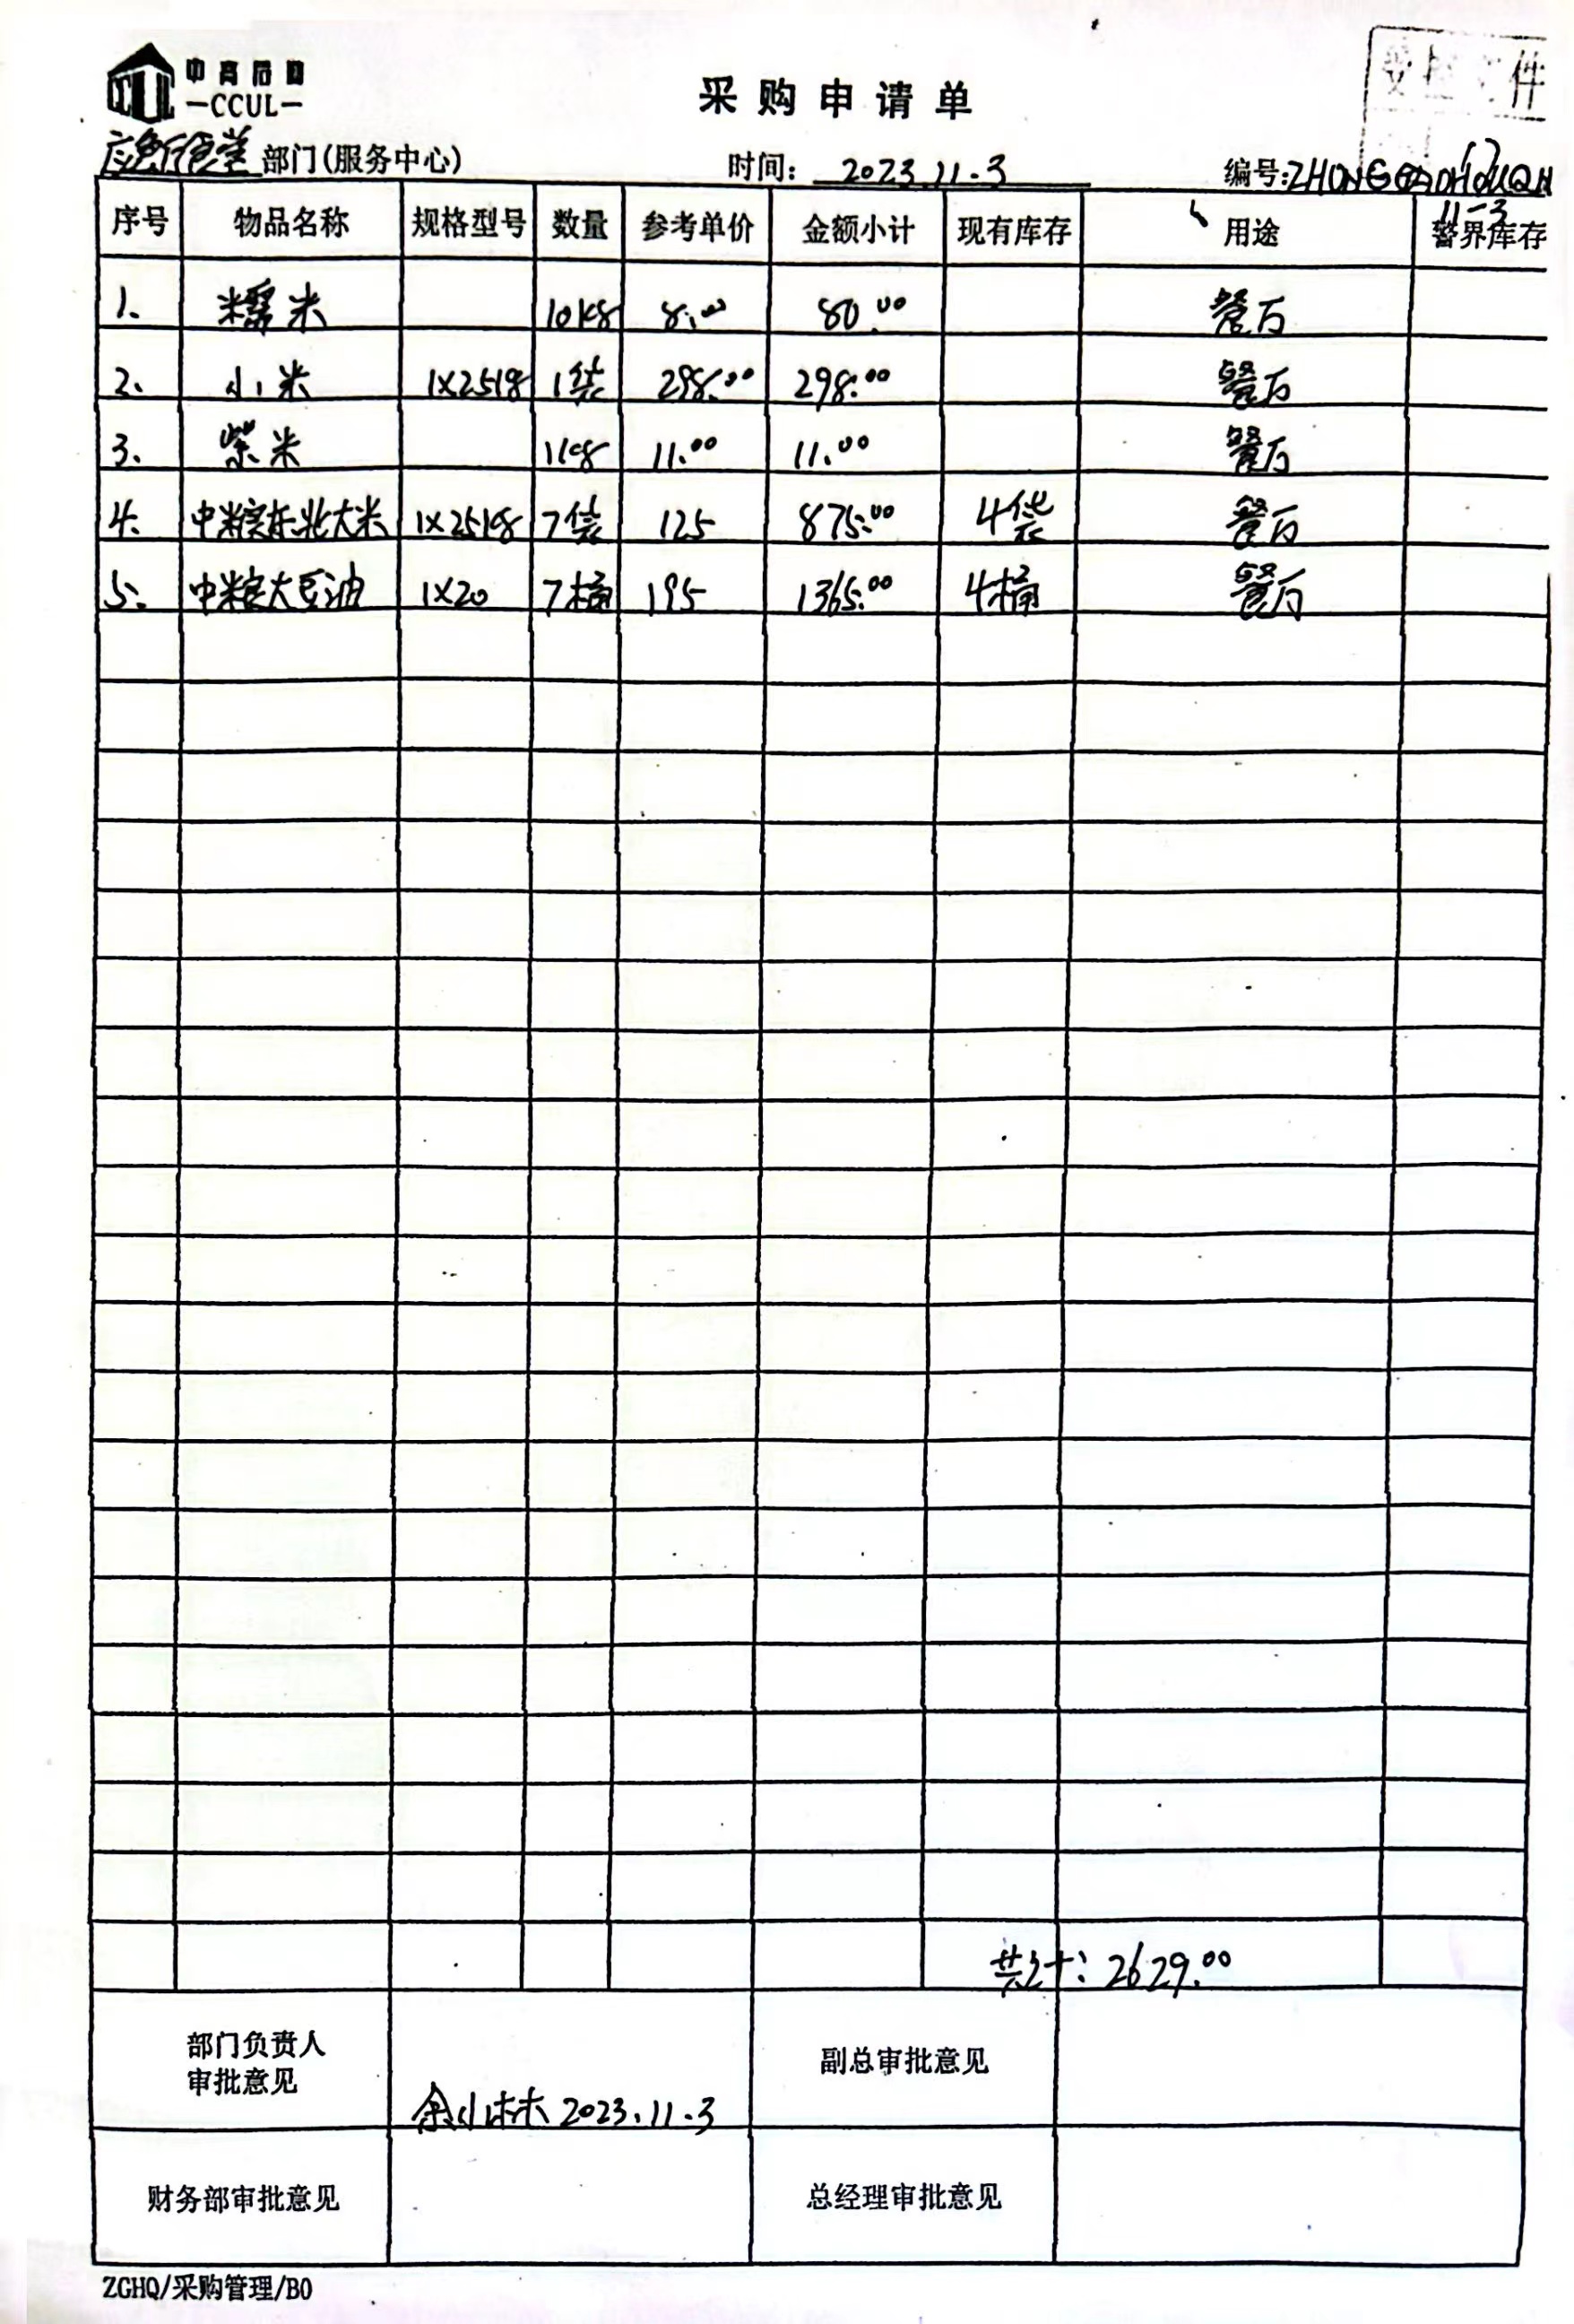 中高后勤
—CCUL—
采购申请单
应急厅食堂 部门(服务中心) 时间: 2023.11.3 编号:
11-3
序号 物品名称 规格型号 数量 参考单价 金额小计 现有库存 用途 警界库存
1、 糯米 10kg 8.00 80.00 餐厅
2、 小米 1X25kg 1袋 298.00 298.00 餐厅
3、 紫米 1kg 11.00 11.00 餐厅
4、 中粮东北大米 1X25kg 7袋 125 875.00 4袋 餐厅
5、 中粮大豆油 1X20 7桶 195 1365.00 4桶 餐厅
共计: 2629.00
部门负责人
审批意见
余小林 2023.11.3
副总审批意见
财务部审批意见 总经理审批意见
ZGHQ/采购管理/B0